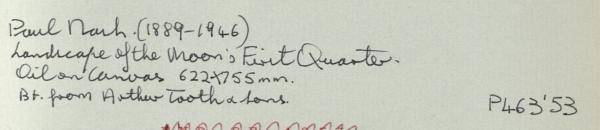 Paul Nash. (1889-1946)
Landscape of the Moon's First Quarter.
Oil on Canvas 622x755mm.
Bt. from Arthur Tooth & Sons.
P463'53